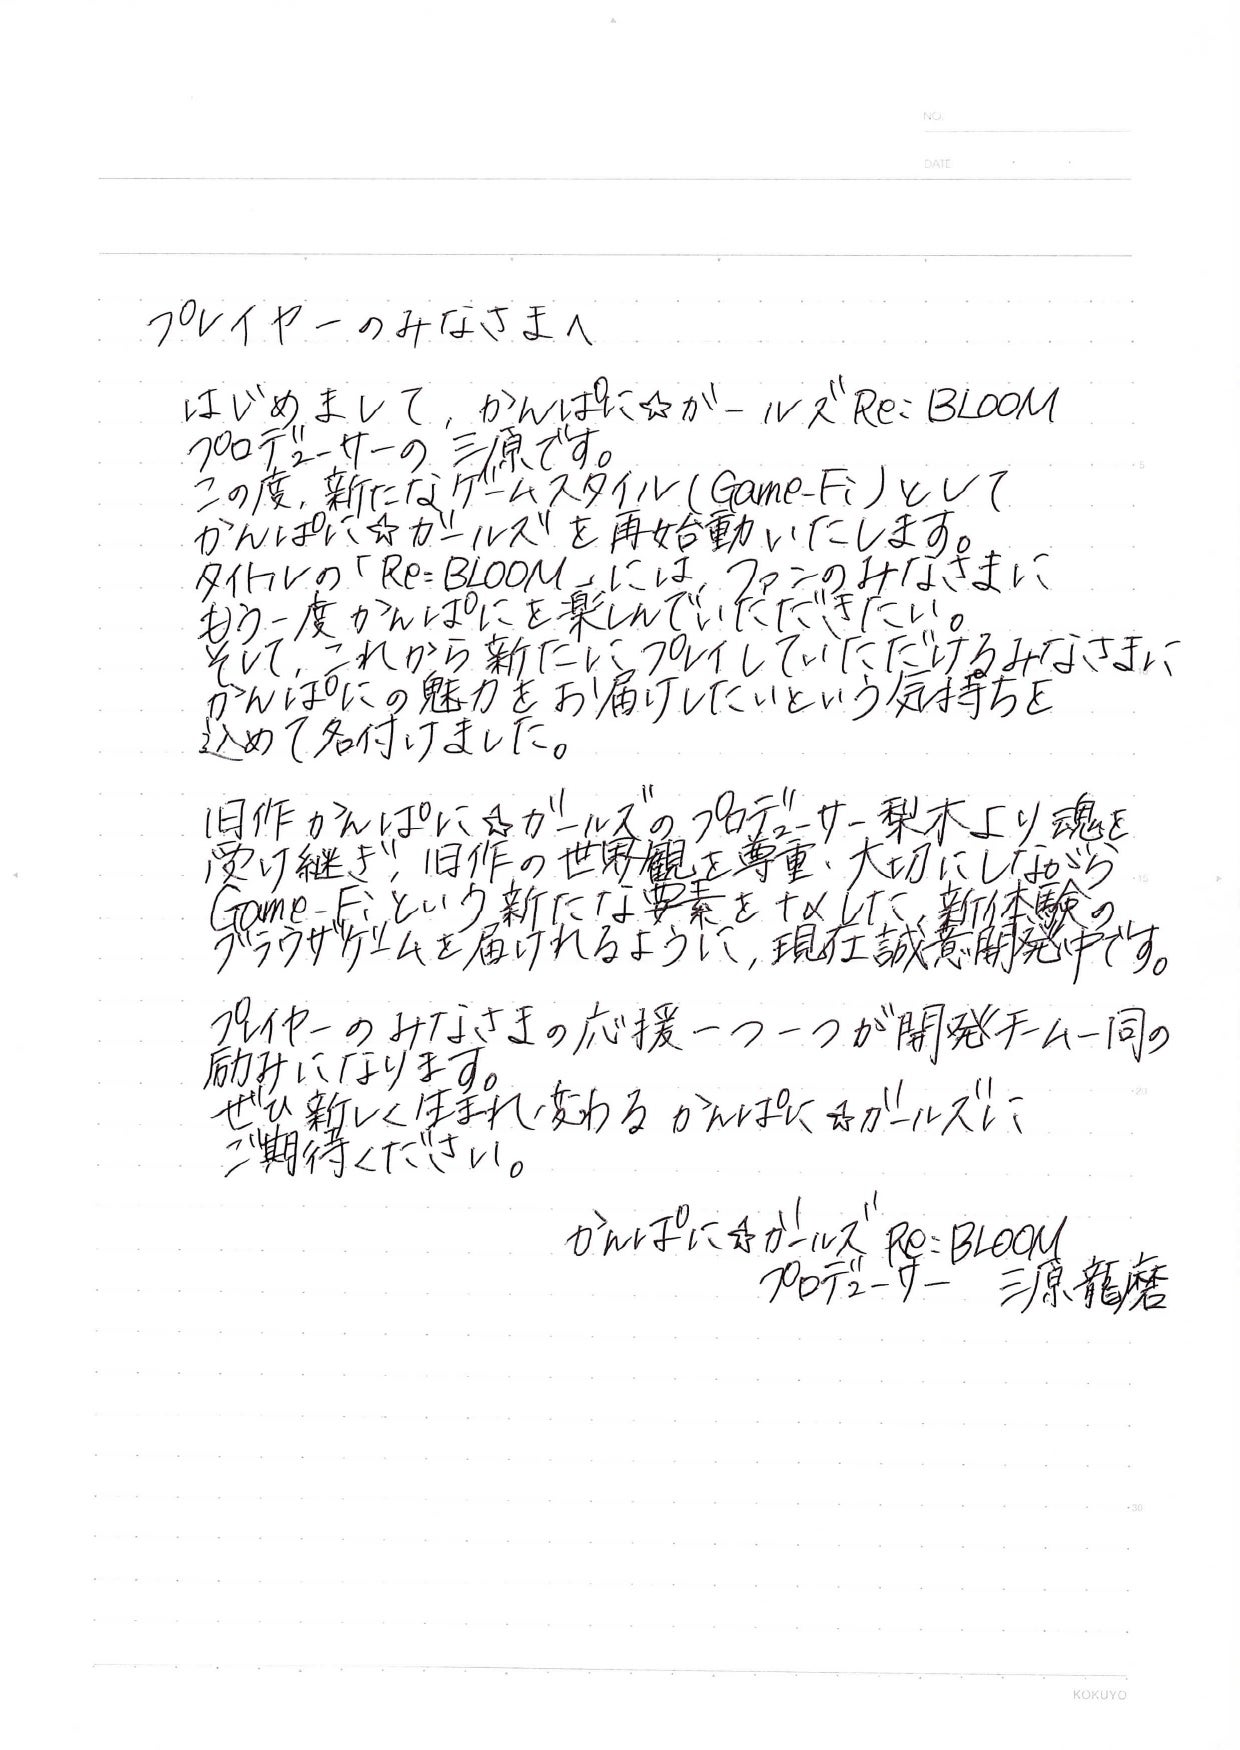 NO.
DATE
プレイヤーのみなさまへ
はじめまして、かんぱに☆ガールズRe:BLOOM
プロデューサーの三原です。
この度、新たなゲームスタイル(Game-Fi)として
かんぱに☆ガールズを再始動いたします。
タイトルの「Re:BLOOM」には、ファンのみなさまに
もう一度かんぱにを楽しんでいただきたい。
そして、これから新たにプレイしていただけるみなさまに
かんぱにの魅力をお届けしたいという気持ちを
込めて名付けました。
旧作かんぱに☆ガールズのプロデューサー梨木より魂を
受け継ぎ、旧作の世界観を尊重・大切にしながら
Game-Fiという新たな要素を+αした、新体験の
ブラウザゲームを届けれるように、現在誠意開発中です。
プレイヤーのみなさまの応援一つ一つが開発チーム一同の
励みになります。
ぜひ新しく生まれ変わるかんぱに☆ガールズに
ご期待ください。
かんぱに☆ガールズ Re:BLOOM
プロデューサー 三原龍磨
5
15
20
30
KOKUYO